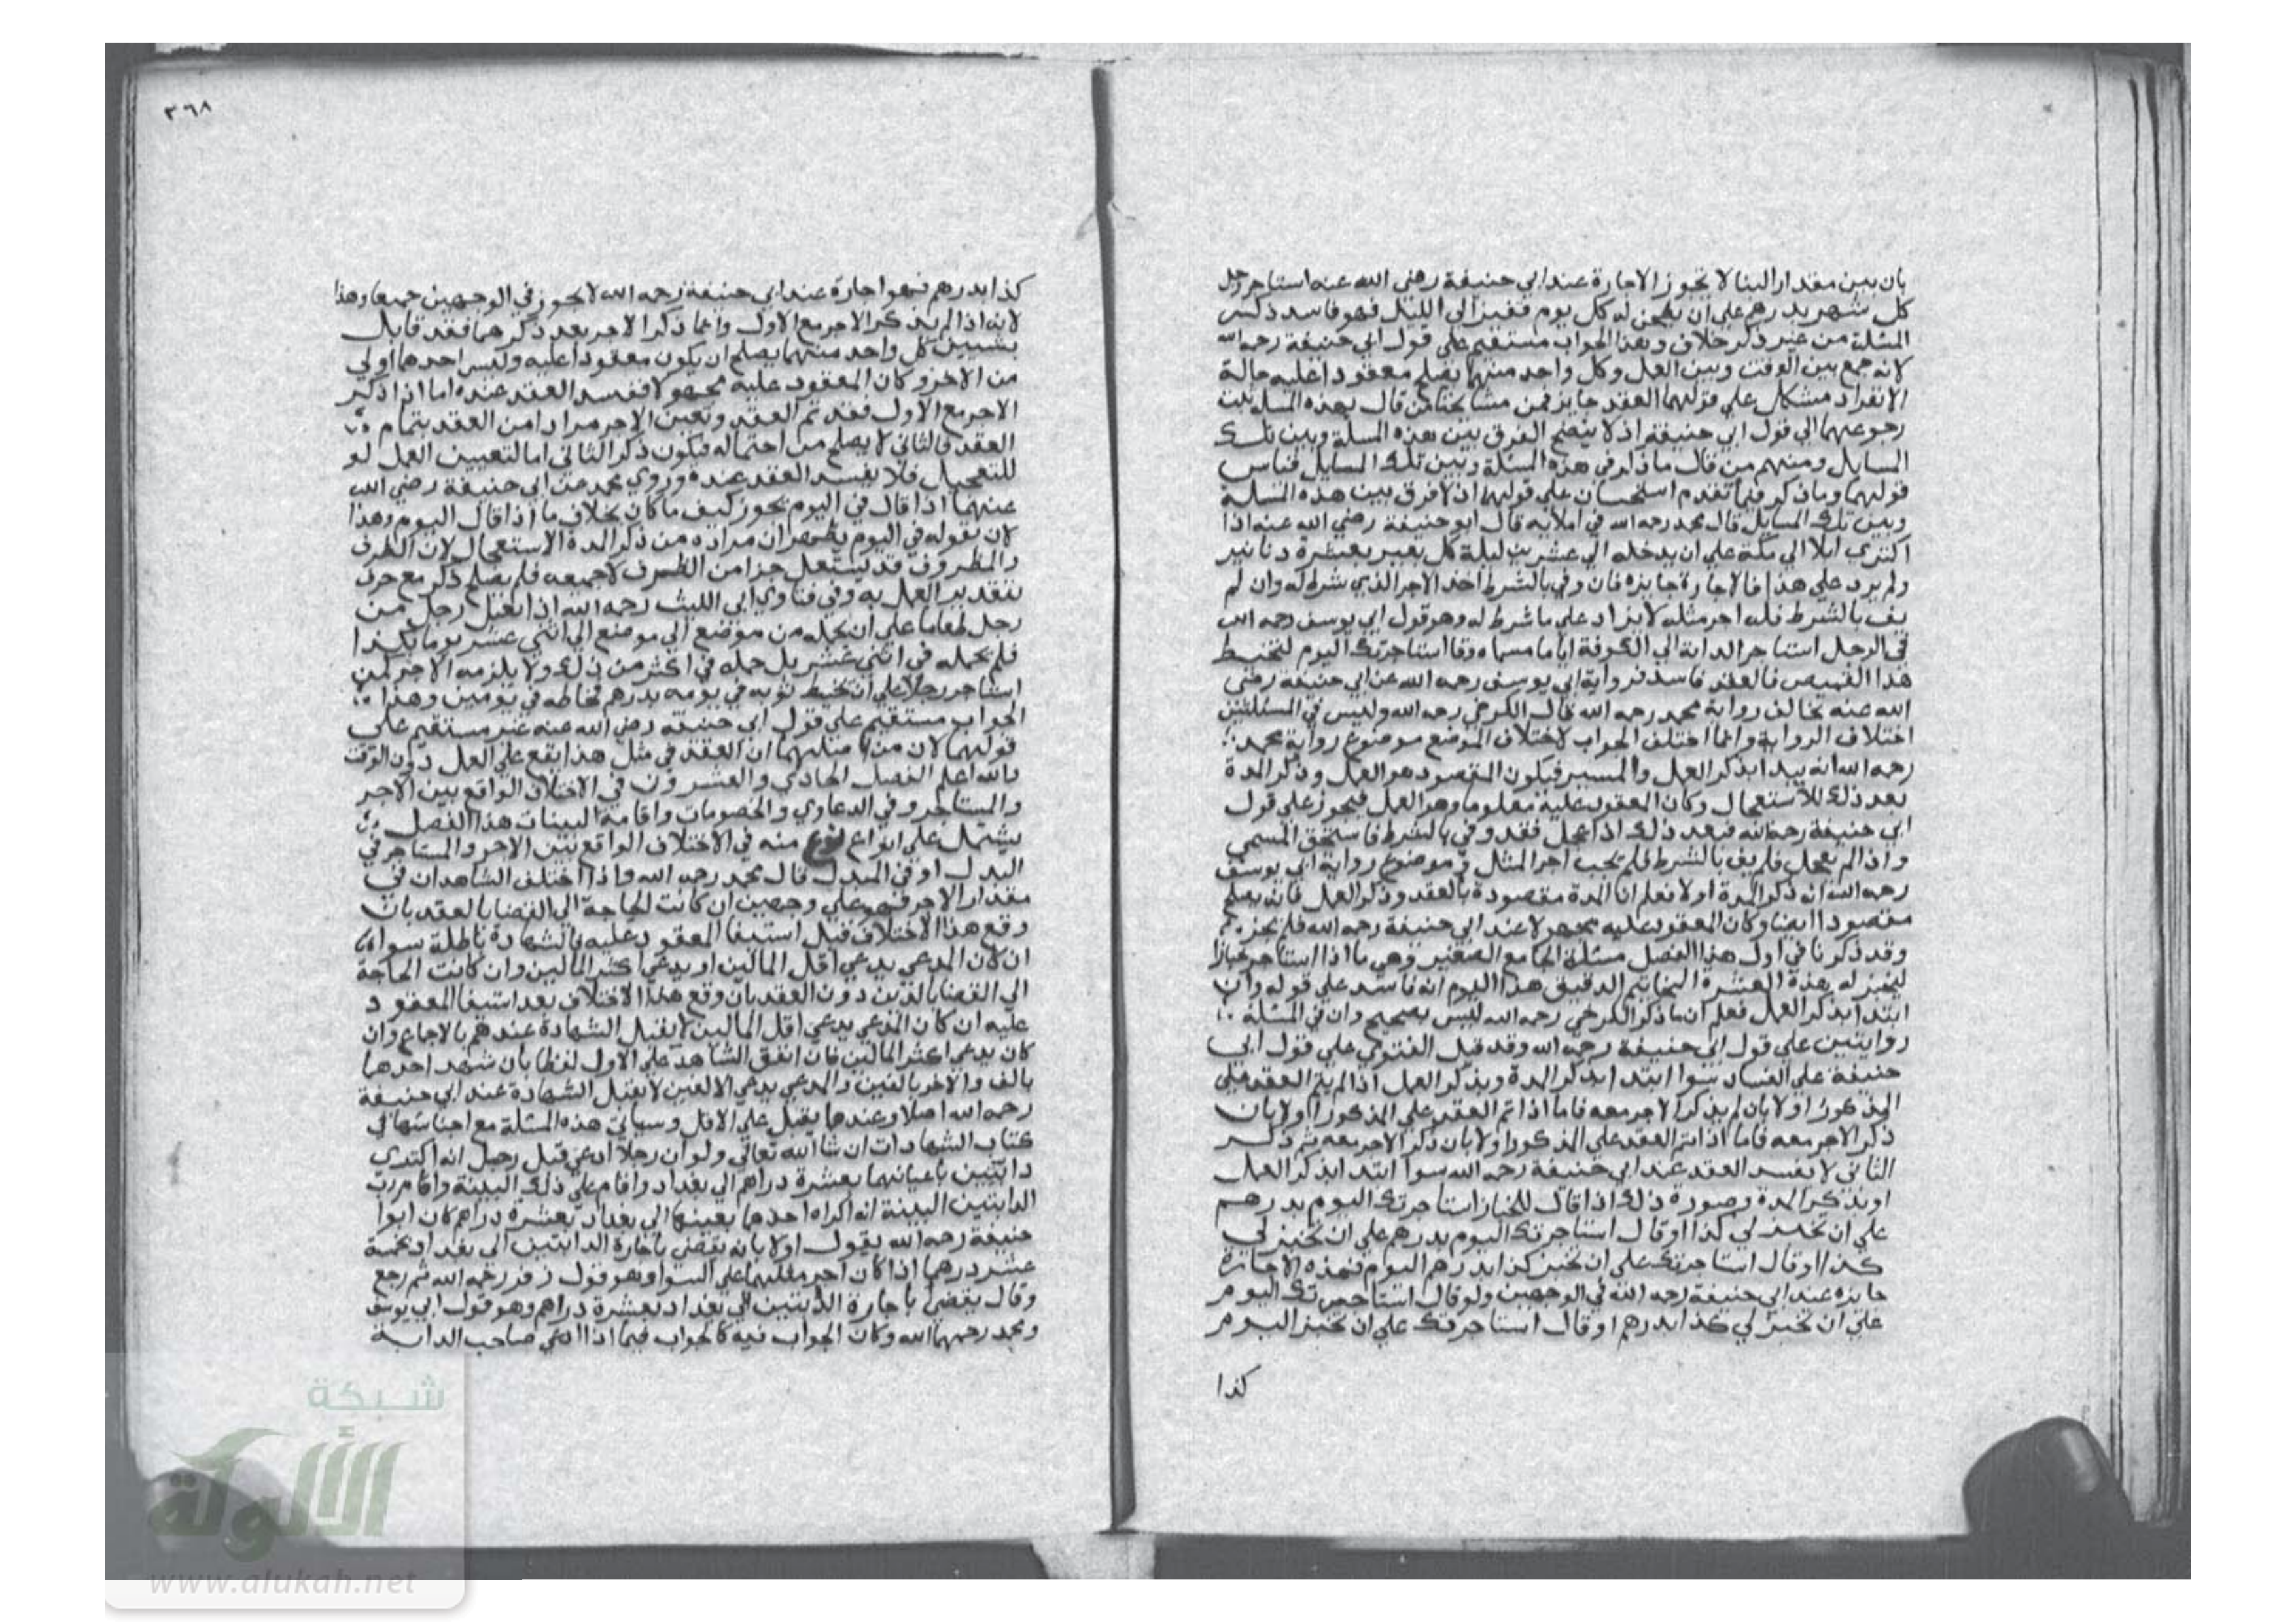 بان يبين مقدار البنا لا تجوز الاجارة عند ابي حنيفة رضي الله عنه استاجر رجل
كل شهر بدرهم علي ان يطحن له كل يوم قفيزا الي الليل فهو فاسد ذكر
المسئلة من غير ذكر خلاف وهذا الجواب مستقيم علي قول ابي حنيفة رحمه الله
لانه جمع بين الوقت وبين العمل وكل واحد منهما يصلح معقودا عليه حالة
الانفراد مشكل علي قولهما العقد جايز فمن مشايخنا من قال بهذه المسلة ثبت
رجوعهما الي قول ابي حنيفة اذ لا يتضح الفرق بين هذه المسلة وبين تلك
المسايل ومنهم من قال ما ذكر في هذه المسئلة وبين تلك المسايل قياس
قولهما وما ذكر فيما تقدم استحسان علي قولهما اذ لا فرق بين هذه المسلة
وبين تلك المسايل قال محمد رحمه الله في املايه قال ابو حنيفة رضي الله عنه اذا
اكتري ابلا الي مكة علي ان يدخله الي عشرين ليلة كل بعير بعشرة دنانير
ولم يرد علي هذا فالاجارة جايزه فان وفي بالشرط اخذ الاجر الذي شرط له وان لم
يف بالشرط فله اجر مثله لا يزاد علي ما شرط له وهو قول ابي يوسف رحمه الله
في الرجل استاجر الدابة الي الكوفة اياما مسماه وقا استاجرتك اليوم لتخيط
هذا القميص فالعقد فاسد فرواية ابي يوسف رحمه الله عن ابي حنيفة رضي
الله عنه تخالف رواية محمد رحمه الله قال الكرخي رحمه الله وليس في المسئلتين
اختلاف الرواية وانما اختلف الجواب لاختلاف الموضع موضوع رواية محمد
رحمه الله انه يبدا بذكر العمل والمسير فيكون المقصود هو العمل وذكر المدة
بعد ذلك للاستعجال وكان المعقود عليه معلوما وهو العمل فيجوز علي قول
ابي حنيفة رحمه الله فبعد ذلك اذا عجل فقد وفي بالشرط فاستحق المسمي
واذا لم يعجل فلم يف بالشرط فلم يجب اجر المثل و موضوع رواية ابي يوسف
رحمه الله انه ذكر المدة اولا نعلم ان المدة مقصودة بالعقد وذكر العمل فانه يصلح
مقصودا ايضا وكان المعقود عليه مجهولا عند ابي حنيفة رحمه الله فلم يجزه
وقد ذكرنا في اول هذا الفصل مسئلة الجامع الصغير وهي ما اذا استاجر خبازا
ليخبز له هذه العشرة المخاتيم الدقيق هذا اليوم انه فاسد علي قوله وان
ابتدا بذكر العمل فعلم ان ما ذكر الكرخي رحمه الله ليس بصحيح وان في المسئلة
روايتين علي قول ابي حنيفة رحمه الله وقد قيل الفتوي علي قول ابي
حنيفة علي الفساد سوا ابتدا بذكر المدة وبذكر العمل اذا لم يتم العقد علي
المذكور اولا بان لم يذكر الاجر معه فاما اذا تم العقد علي المذكور اولا بان
ذكر الاجر معه فاما اذا تم العقد علي المذكور اولا بان ذكر الاجر معه ثم ذكر
الثاني لا يفسد العقد عند ابي حنيفة رحمه الله سوا ابتدا بذكر العمل
او بذكر المدة وصورة ذلك اذا قال للخباز استاجرتك اليوم بدرهم
علي ان تخبز لي كذا او قال استاجرتك اليوم بدرهم علي ان تخبز لي
كذا او قال استاجرتك علي ان تخبز كذا بدرهم اليوم فهذه الاجارة
جايزه عند ابي حنيفة رحمه الله في الوجهين ولو قال استاجرتك اليوم
علي ان تخبز لي كذا بدرهم او قال استاجرتك علي ان تخبز اليوم
كذا
٣٦٨
كذا بدرهم فهو اجارة عند ابي حنيفة رحمه الله لا يجوز في الوجهين جميعا وهذا
لانه اذا لم يذكر الاجر مع الاول وانما ذكر الاجر بعد ذكرهما فقد قابل
بشيين كل واحد منهما يصلح ان يكون معقودا عليه وليس احدهما اولي
من الاخر وكان المعقود عليه مجهولا ففسد العقد عنده اما اذا ذكر
الاجر مع الاول فقد تم العقد وتعين الاجر مرادا من العقد بتمام
العقد فالثاني لا يصلح من احتماله فيكون ذكر الثاني اما لتعيين العمل او
للتعجيل فلا يفسد العقد عنده وروي محمد عن ابي حنيفة رضي الله
عنهما اذا قال في اليوم يجوز كيف ما كان بخلاف ما اذا قال اليوم وهذا
لان بقوله في اليوم يظهر ان مراده من ذكر المدة الاستعجال لان الظرف
والمظروف قد يشتغل جزا من الظرف لا جميعه فلم يصلح ذكر مع حرف
لتقدير العمل به وفي فتاوي ابي الليث رحمه الله اذا تقبل رجل من
رجل طعاما علي ان يحمله من موضع الي موضع الي اثني عشر يوما بكذا
فلم يحمله في اثني عشر بل حمله في اكثر من ذلك ولا يلزمه الاجر كمن
استاجر رجلا علي ان يخيط ثوبه في يومه بدرهم فخاطه في يومين وهذا
الجواب مستقيم علي قول ابي حنيفة رضي الله عنه غير مستقيم علي
قولهما لان من اصلهما ان العقد في مثل هذا يقع علي العمل دون الوقت
والله اعلم الفصل الحادي والعشرون في الاختلاف الواقع بين الاجر
والمستاجر وفي الدعاوي والخصومات واقامة البينات هذا الفصل
يشتمل علي انواع نوع منه في الاختلاف الواقع بين الاجر والمستاجر في
البدل او في المبدل قال محمد رحمه الله واذا اختلف الشاهدان في
مقدار الاجر فهو علي وجهين ان كانت الحاجة الي القضا بالعقد بان
وقع هذا الاختلاف قبل استيفا المعقود عليه فالشهادة باطلة سوا
ان كان المدعي يدعي اقل المالين او يدعي اكثر المالين وان كانت الحاجة
الي القضا بالدين دون العقد بان وقع هذا الاختلاف بعد استيفا المعقود
عليه ان كان المدعي يدعي اقل المالين لا يقبل الشهادة عندهم بالاجماع وان
كان يدعي اكثر المالين فان اتفق الشاهد علي الاول لفظا بان شهد احدهما
بالف والاخر بالفين والمدعي يدعي الالفين لا يقبل الشهادة عند ابي حنيفة
رحمه الله اصلا وعندهما يقبل علي الاقل وسياتي هذه المسئلة مع اجناسها في
كتاب الشهادات ان شا الله تعالي ولو ان رجلا ادعي قبل رجل انه اكتري
دابتين باعيانهما بعشرة دراهم الي بغداد واقام علي ذلك البينة واقام رب
الدابتين البينة انه اكراه احدهما بعينها الي بغداد بعشرة دراهم كان ابوا
حنيفة رحمه الله يقول اولا بانه يقضي باجارة الدابتين الي بغداد بخمسة
عشر درهما اذا كان اجر مثلهما علي السوا وهو قول زفر رحمه الله ثم رجع
وقال يقضي باجارة الدابتين الي بغداد بعشرة دراهم وهو قول ابي يوسف
ومحمد رحمهما الله وكان الجواب فيه كالجواب فيما اذا ادعي صاحب الدابة
شبكة
الألوكة
www.alukah.net